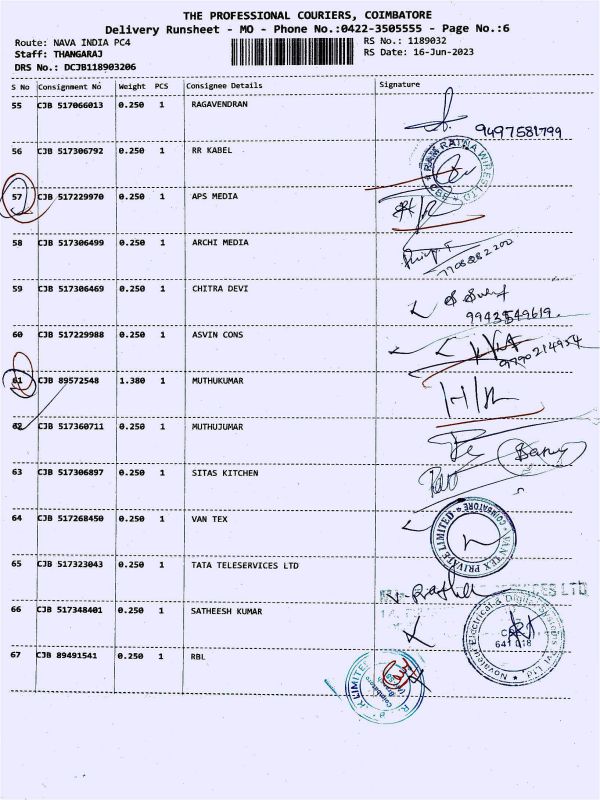 THE PROFESSIONAL COURIERS, COIMBATORE
Delivery Runsheet - MO - Phone No.:0422-3505555 - Page No.:6
Route: NAVA INDIA PC4 RS No.: 1189032
Staff: THANGARAJ RS Date: 16-Jun-2023
DRS No.: DCJB118903206
S No Consignment No Weight PCS Consignee Details Signature
55 CJB 517066013 0.250 1 RAGAVENDRAN
9497581799
56 CJB 517306792 0.250 1 RR KABEL
RAM RATNA WIRES LTD. * CBE *
57 CJB 517229970 0.250 1 APS MEDIA
58 CJB 517306499 0.250 1 ARCHI MEDIA
7708882200
59 CJB 517306469 0.250 1 CHITRA DEVI
9943549619.
60 CJB 517229988 0.250 1 ASVIN CONS
9790214954
61 CJB 89572548 1.380 1 MUTHUKUMAR
62 CJB 517360711 0.250 1 MUTHUJUMAR
63 CJB 517306897 0.250 1 SITAS KITCHEN
64 CJB 517268450 0.250 1 VAN TEX
VAN TEX PRIVATE LIMITED * COIMBATORE *
65 CJB 517323043 0.250 1 TATA TELESERVICES LTD
SERVICES LTD
66 CJB 517348401 0.250 1 SATHEESH KUMAR
Novateur Electrical & Digital Systems Pvt Ltd *
641 018
67 CJB 89491541 0.250 1 RBL
LIMITED
Coimbatore